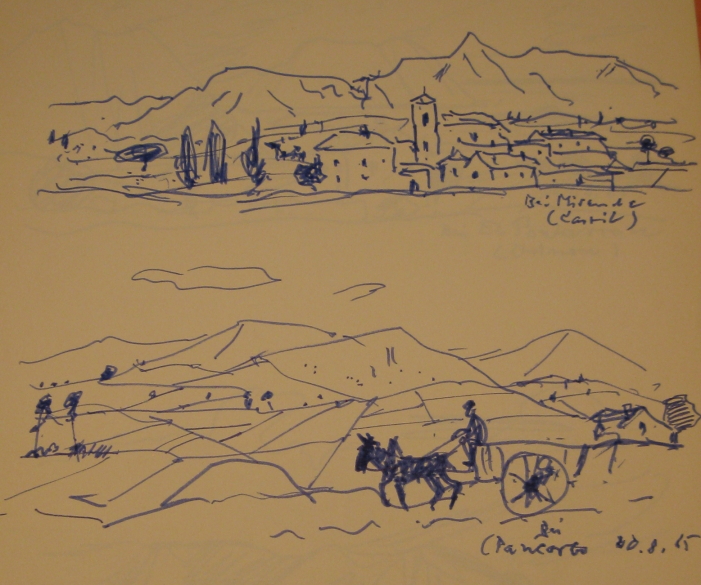 Bei Miranda
(Castil)
Bei
(Pancorbo 20.8.65